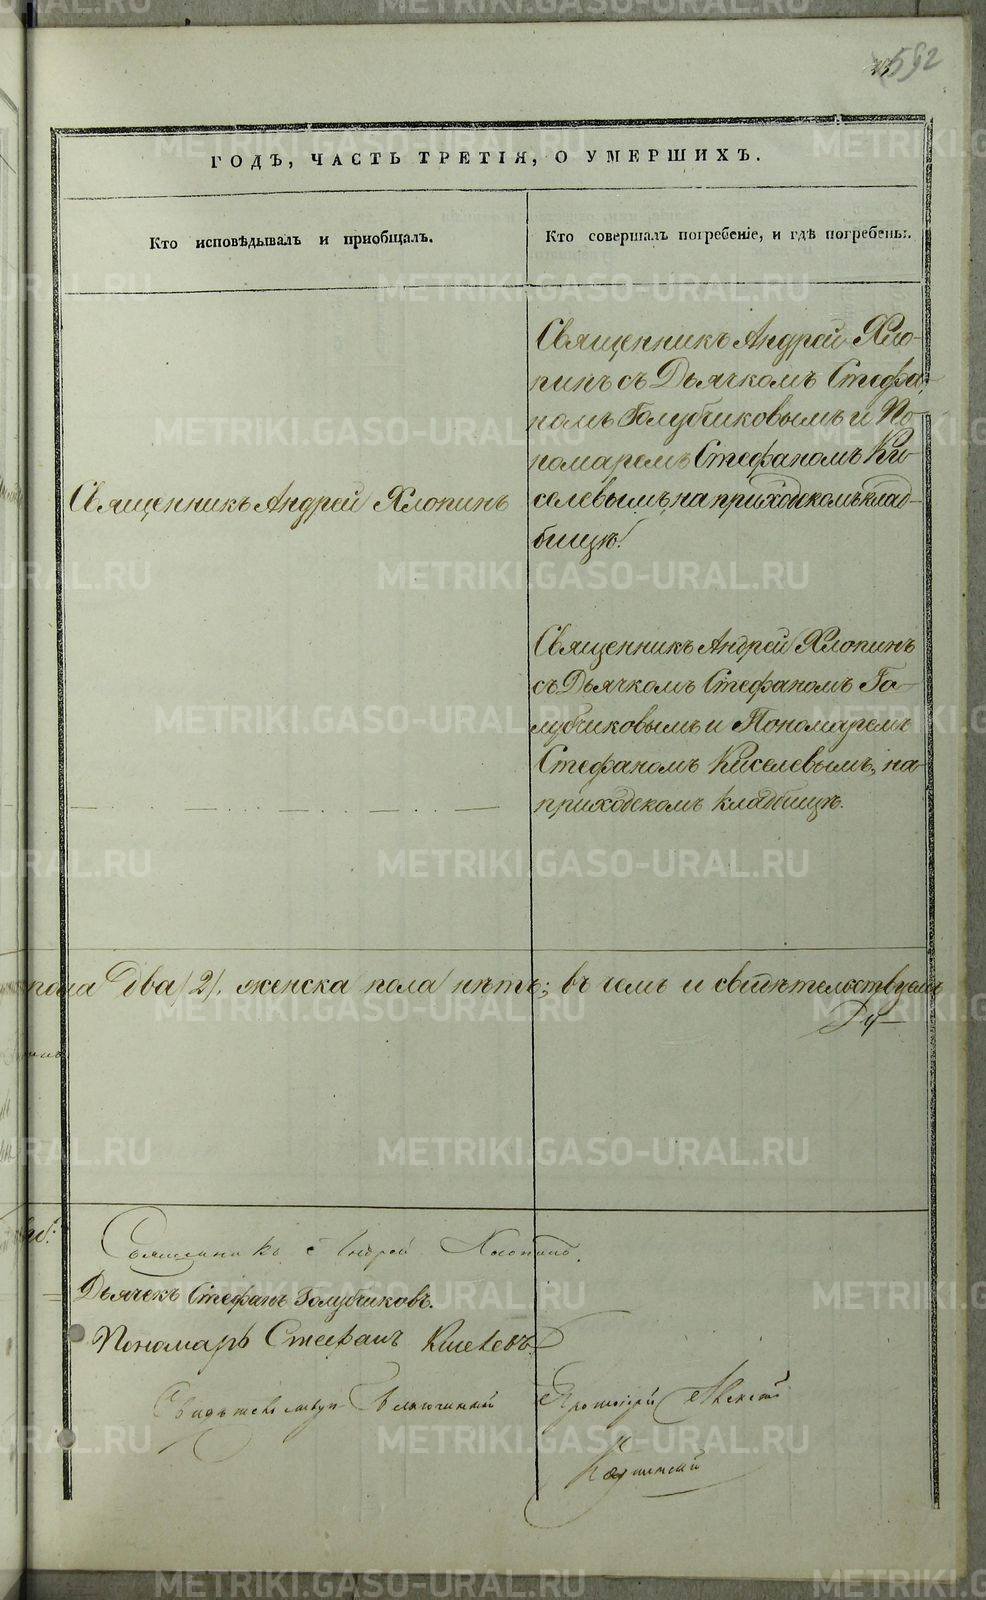 592
ГОДЪ, ЧАСТЬ ТРЕТІЯ, О УМЕРШИХЪ.
Кто исповѣдывалъ и приобщалъ.
Кто совершалъ погребеніе, и гдѣ погребены.
Священникъ Андрей Хлопинъ
Священникъ Андрей Хло-
пинъ съ Дьячкомъ Стефа-
номъ Голубчиковымъ и По-
номаремъ Стефаномъ Ки-
селевымъ, на приходскомъ клад-
бищѣ.
Священникъ Андрей Хлопинъ
съ Дьячкомъ Стефаномъ Го-
лубчиковымъ и Пономаремъ
Стефаномъ Киселевымъ, на
приходскомъ кладбищѣ.
пола два /2/. женска пола нѣтъ; въ чемъ и свидѣтельствуемъ
Священникъ Андрей Хлопинъ.
Дьячекъ Стефанъ Голубчиковъ.
Пономарь Стефанъ Киселевъ
Протоіерей Алексій
METRIKI.GASO-URAL.RU